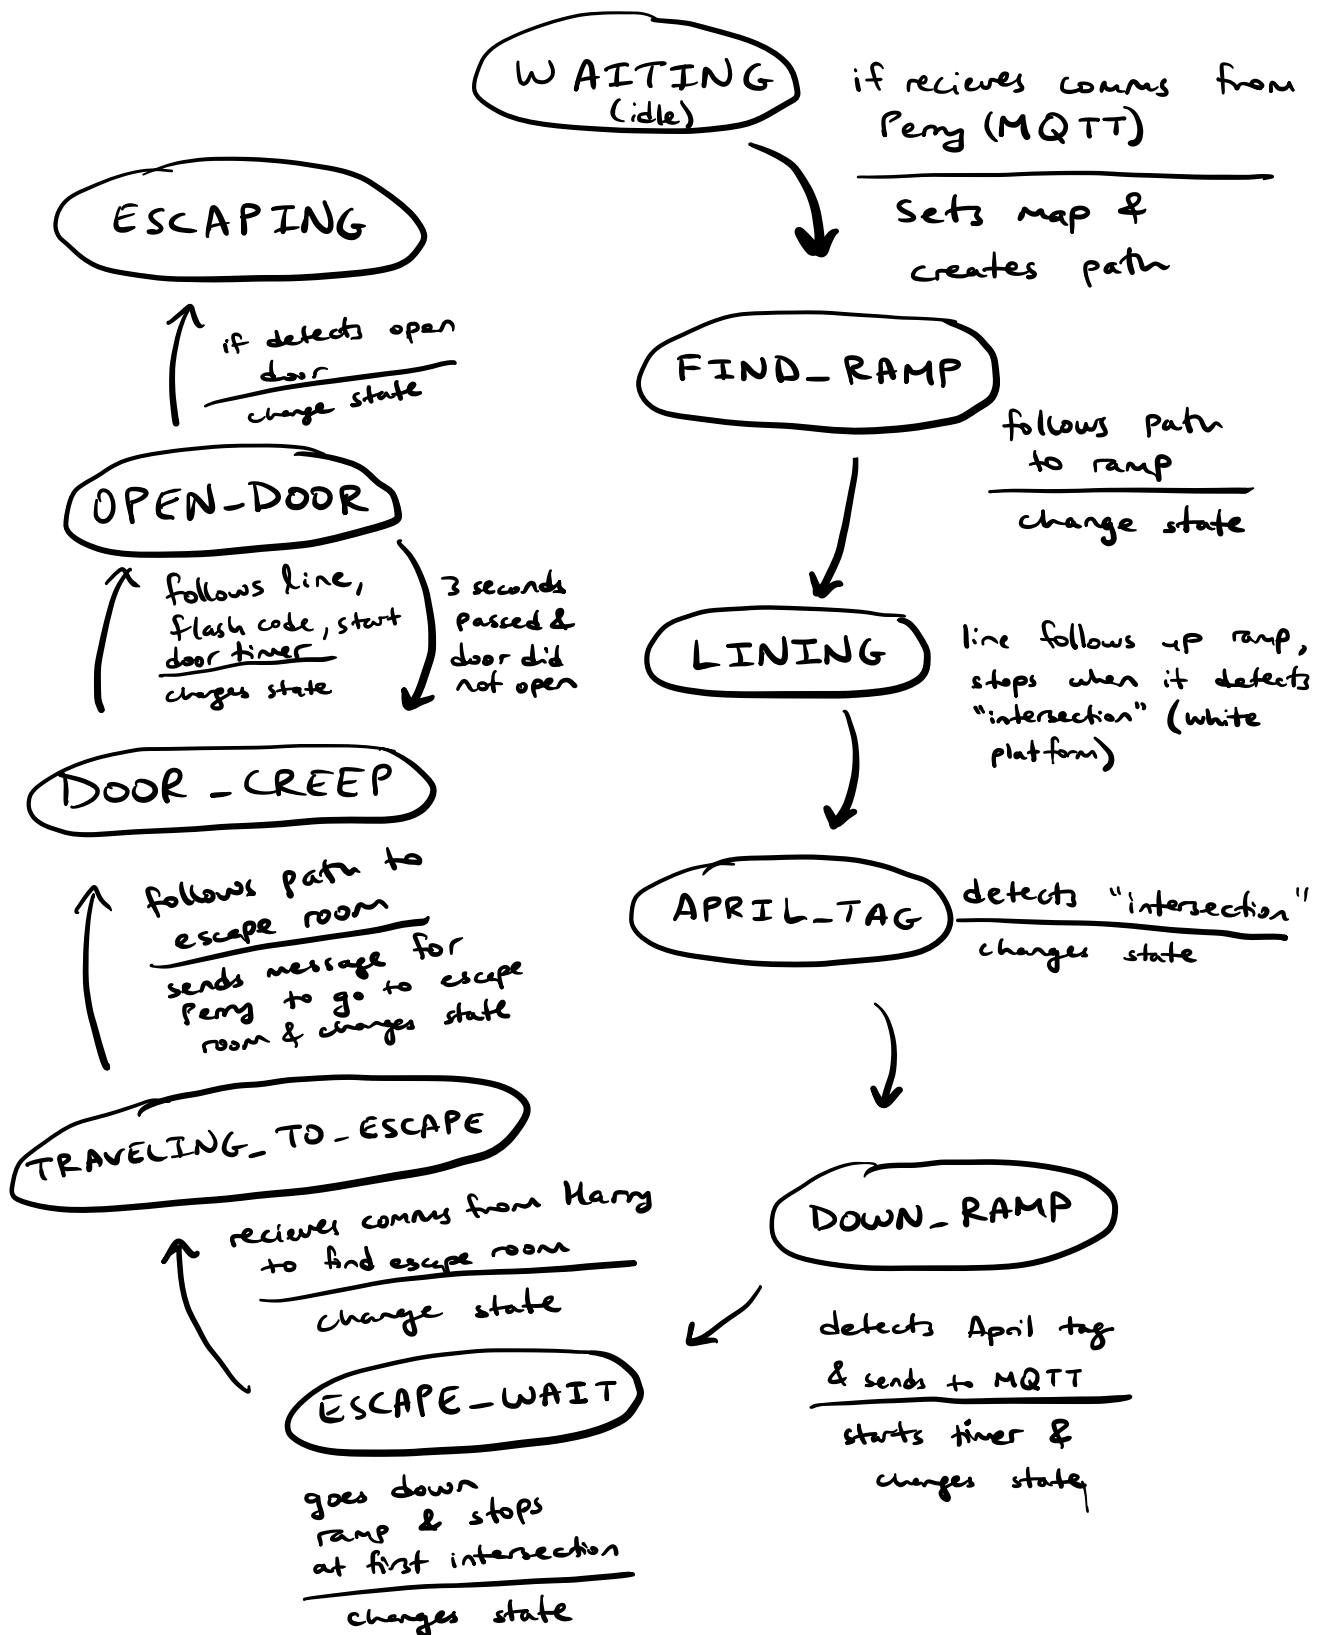 WAITING
(idle)
if recieves comms from
Perry (MQTT)
Sets map &
creates path
FIND_RAMP
follows path
to ramp
change state
LINING
line follows up ramp,
stops when it detects
"intersection" (white
platform)
APRIL_TAG
detects "intersection"
changes state
DOWN_RAMP
detects April tag
& sends to MQTT
starts timer &
changes state
ESCAPE_WAIT
goes down
ramp & stops
at first intersection
changes state
TRAVELING_TO_ESCAPE
recieves comms from Harry
to find escape room
change state
DOOR_CREEP
follows path to
escape room
sends message for
Perry to go to escape
room & changes state
OPEN_DOOR
follows line,
flash code, start
door timer
changes state
3 seconds
passed &
door did
not open
ESCAPING
if detects open
door
change state